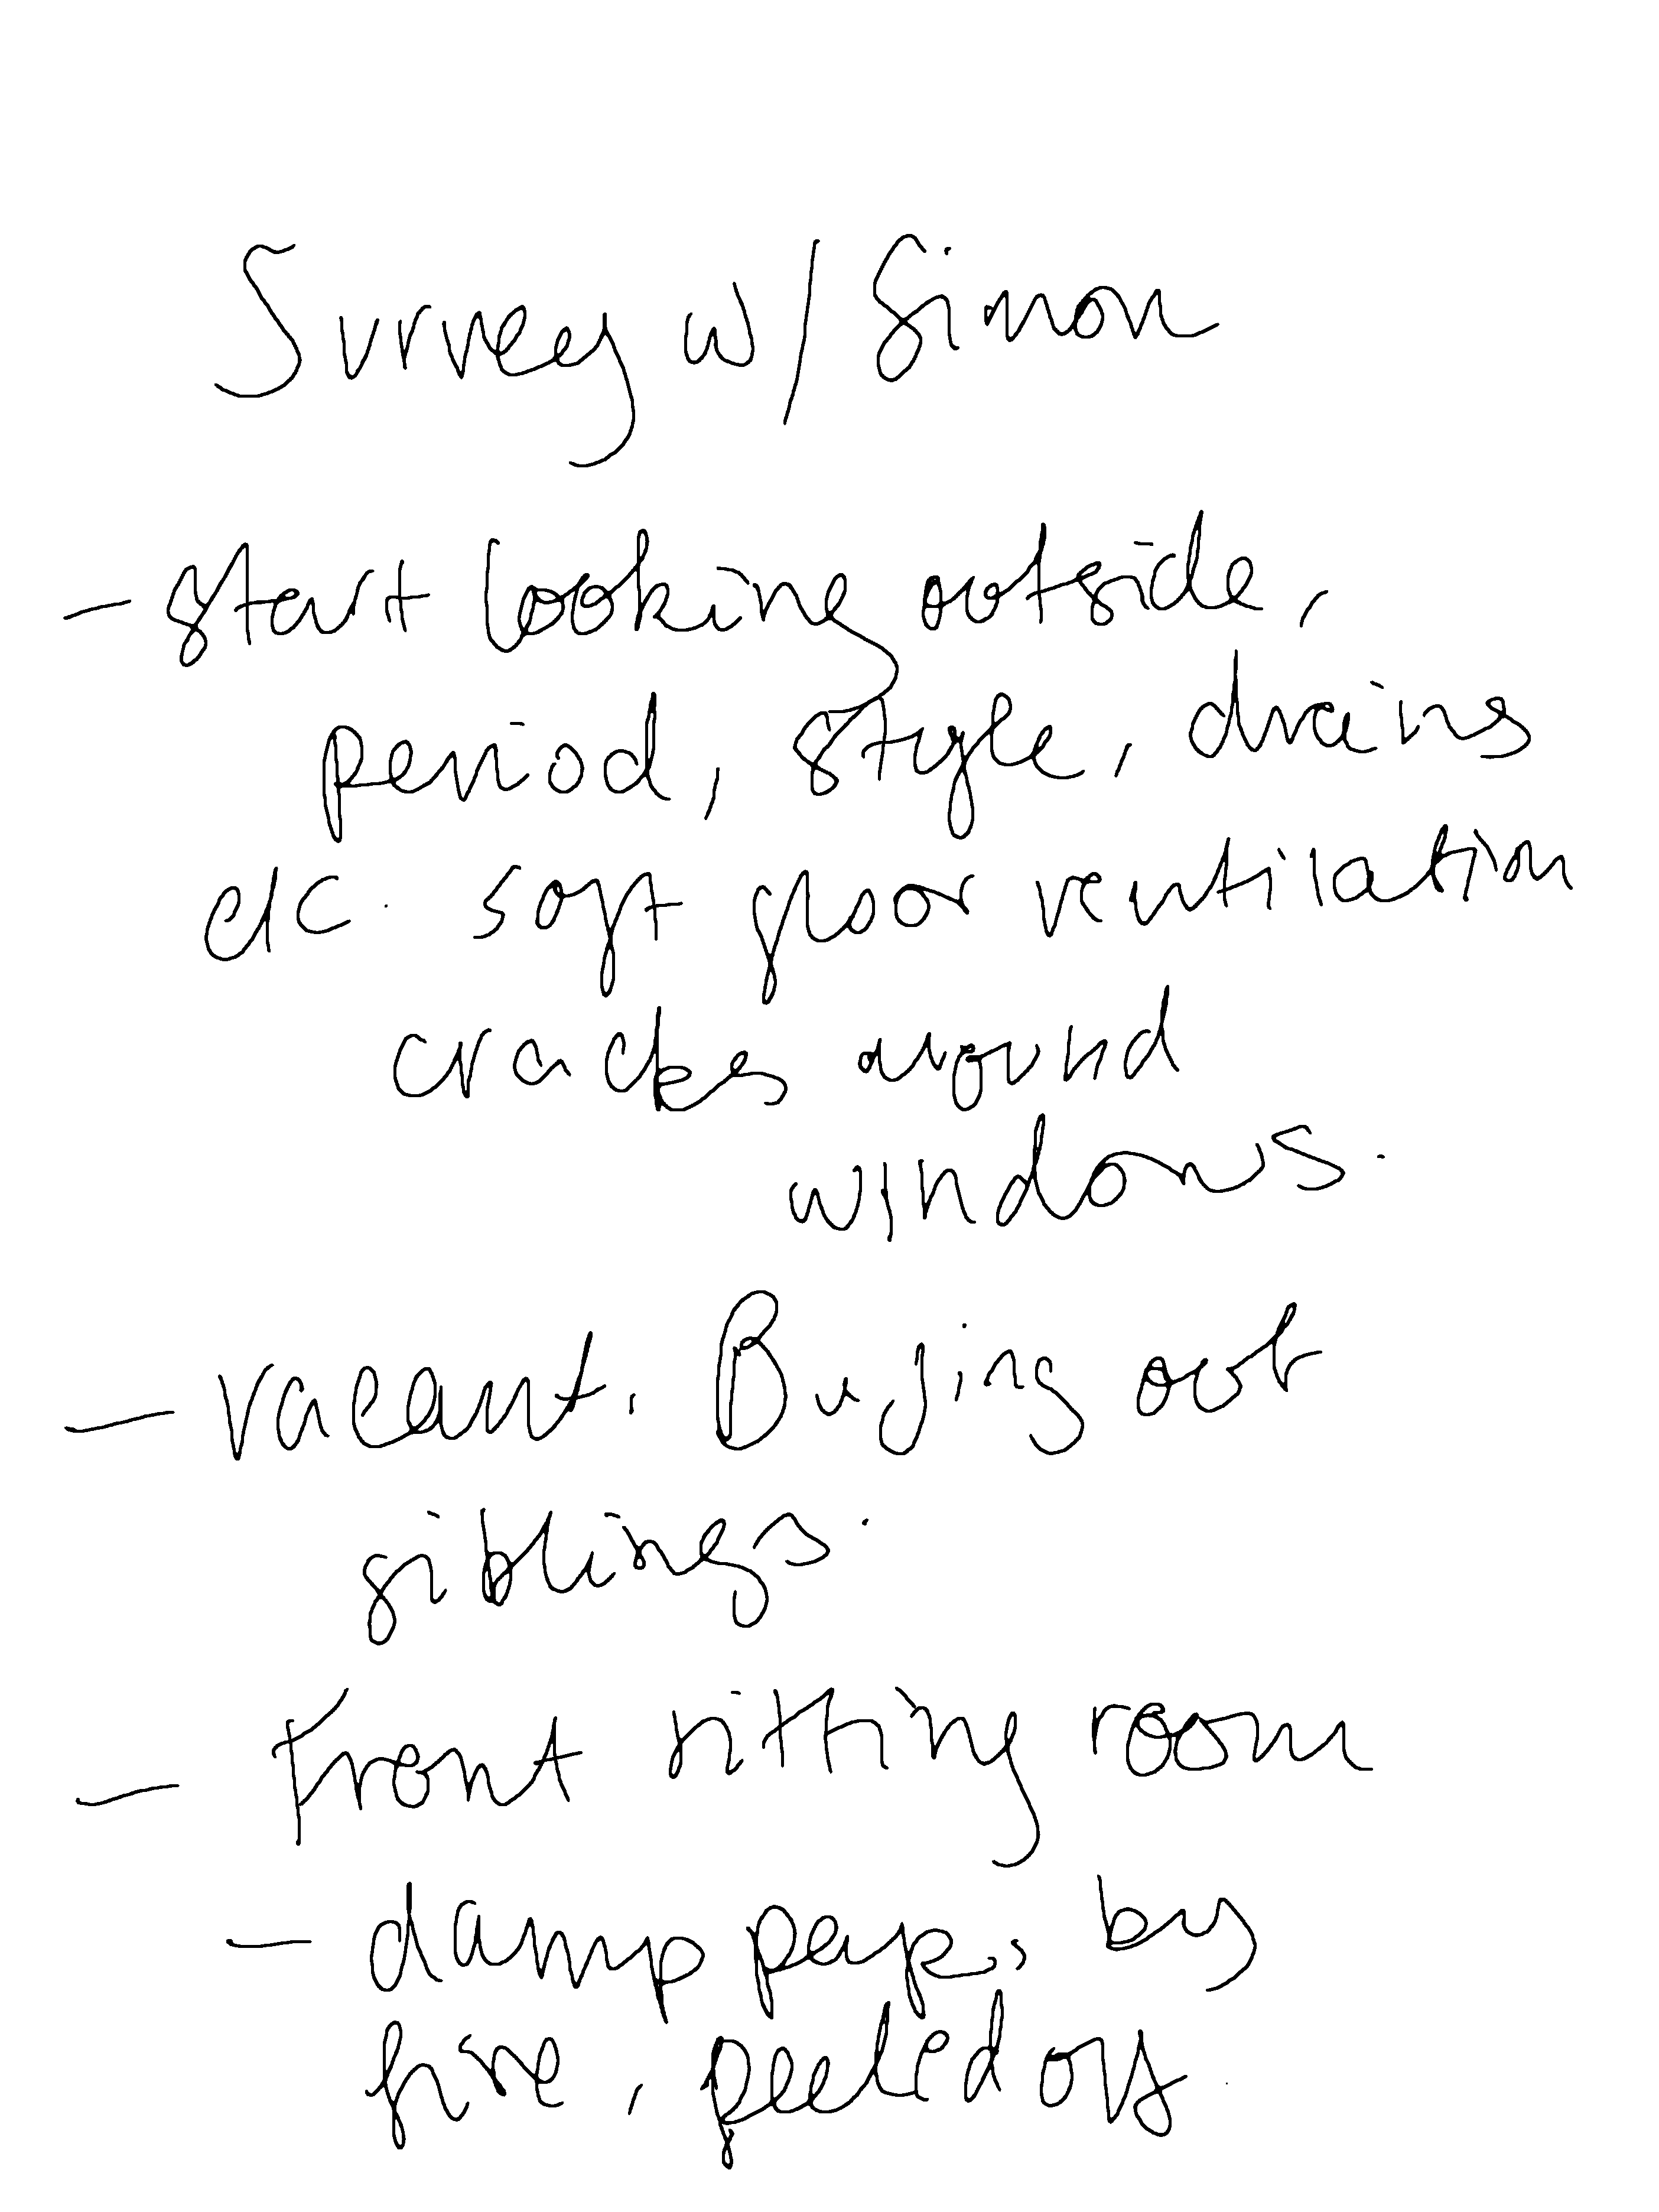 Survey w/ Simon
- start looking outside,
period, style, drains
etc. soft floor ventilation
cracks around
windows.
- vacant. Buying out
siblings.
- Front sitting room
- damp paper by
fire, peeled off